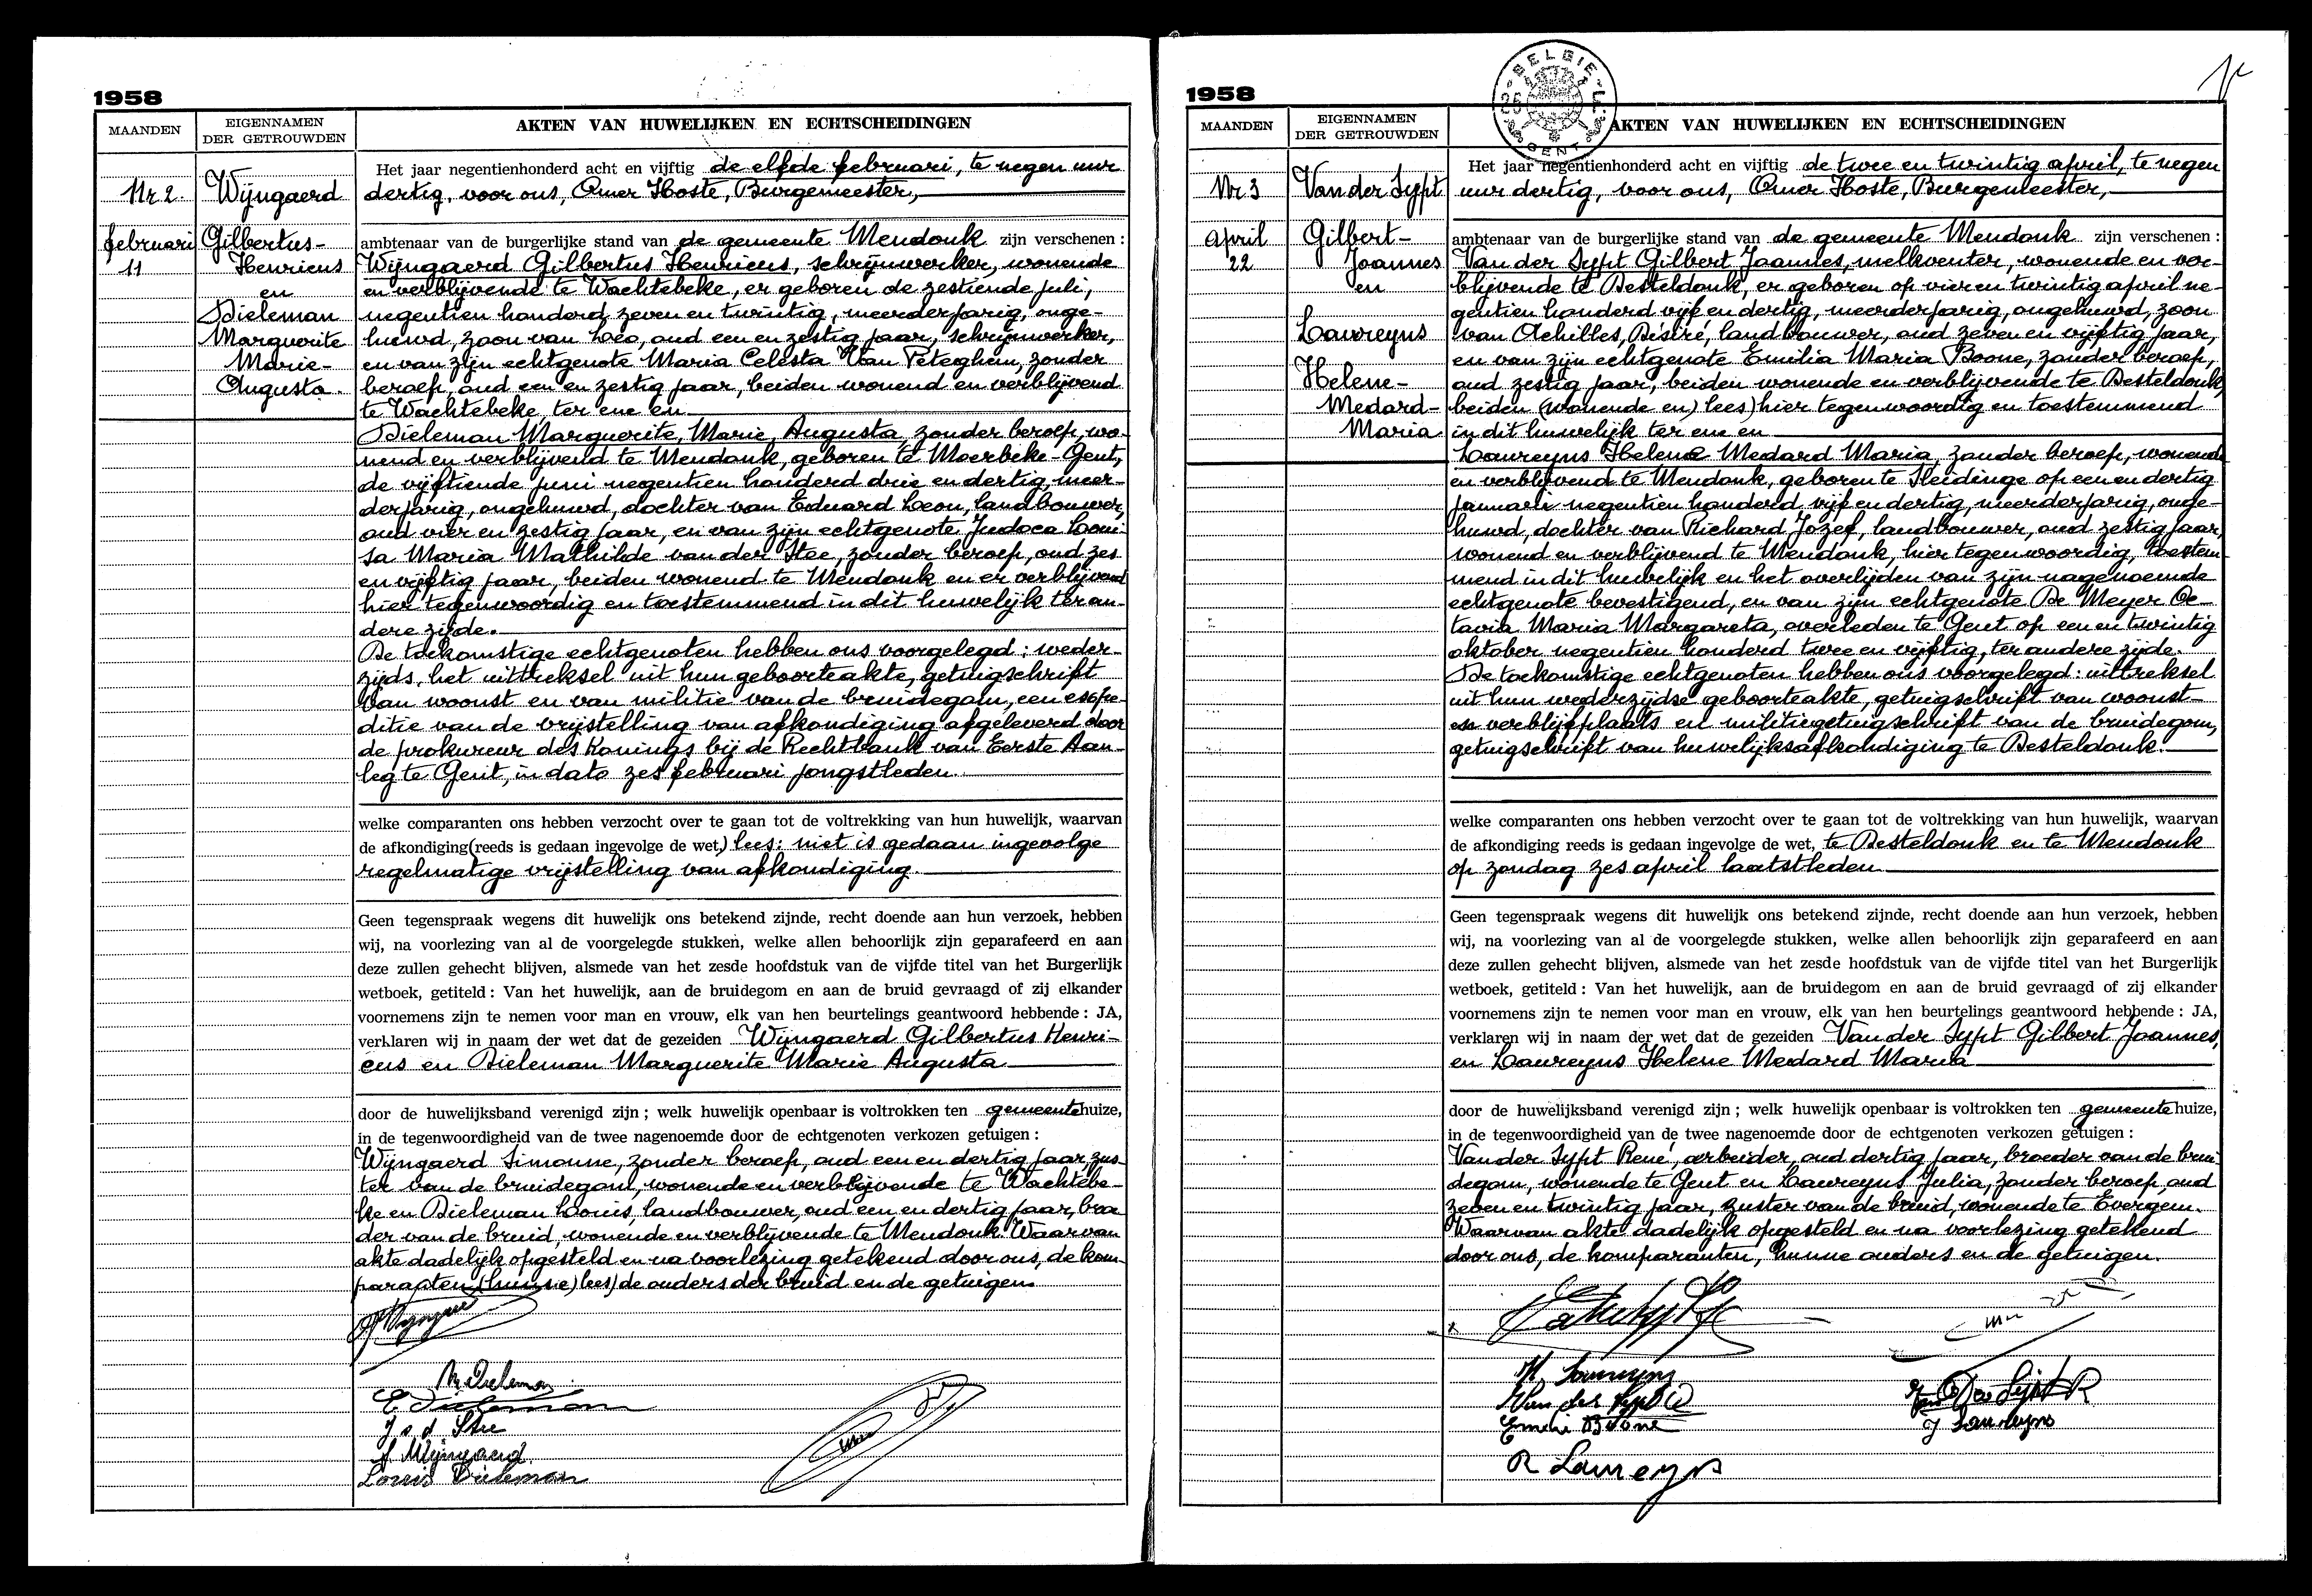 1958
MAANDEN
EIGENNAMEN
DER GETROUWDEN
AKTEN VAN HUWELIJKEN EN ECHTSCHEIDINGEN
Nr 2.
februari
11
Wijngaerd
Gilbertus-
Henricus
en
Dieleman
Marguerite
Marie-
Augusta.
Het jaar negentienhonderd acht en vijftig de elfde februari, te negen uur
dertig, voor ons, Omer Hoste, Burgemeester,
ambtenaar van de burgerlijke stand van de gemeente Mendonk zijn verschenen :
Wijngaerd Gilbertus Henricus, schrijnwerker, wonende
en verblijvende te Wachtebeke, er geboren de zestiende juli,
negentien honderd zeven en twintig, meerderjarig, onge-
huwd, zoon van Leo, oud een en zestig jaar, schrijnwerker,
en van zijn echtgenote Maria Celesta Van Peteghem, zonder
beroep, oud een en zestig jaar, beiden wonend en verblijvend
te Wachtebeke, ter ene en
Dieleman Marguerite, Marie, Augusta, zonder beroep, wo-
nend en verblijvend te Mendonk, geboren te Moerbeke-Gent,
de vijftiende juni negentien honderd drie en dertig, meer-
derjarig, ongehuwd, dochter van Eduard Leon, landbouwer,
oud vier en zestig jaar, en van zijn echtgenote Judoca Loui-
sa Maria Mathilde van der Stee, zonder beroep, oud zes
en vijftig jaar, beiden wonend te Mendonk en er verblijvend
hier tegenwoordig en toestemmend in dit huwelijk ter an-
dere zijde.
De toekomstige echtgenoten hebben ons voorgelegd : weder-
zijds, het uittreksel uit hun geboorteakte, getuigschrift
van woonst en van militie van de bruidegom, een expe-
ditie van de vrijstelling van afkondiging afgeleverd door
de prokureur des Konings bij de Rechtbank van Eerste Aan-
leg te Gent, in dato zes februari jongstleden.
welke comparanten ons hebben verzocht over te gaan tot de voltrekking van hun huwelijk, waarvan
de afkondiging (reeds is gedaan ingevolge de wet,) lees: niet is gedaan ingevolge
regelmatige vrijstelling van afkondiging.
Geen tegenspraak wegens dit huwelijk ons betekend zijnde, recht doende aan hun verzoek, hebben
wij, na voorlezing van al de voorgelegde stukken, welke allen behoorlijk zijn geparafeerd en aan
deze zullen gehecht blijven, alsmede van het zesde hoofdstuk van de vijfde titel van het Burgerlijk
wetboek, getiteld : Van het huwelijk, aan de bruidegom en aan de bruid gevraagd of zij elkander
voornemens zijn te nemen voor man en vrouw, elk van hen beurtelings geantwoord hebbende : JA,
verklaren wij in naam der wet dat de gezeiden Wijngaerd Gilbertus Henri-
cus en Dieleman Marguerite Marie Augusta
door de huwelijksband verenigd zijn ; welk huwelijk openbaar is voltrokken ten gemeentehuize,
in de tegenwoordigheid van de twee nagenoemde door de echtgenoten verkozen getuigen :
Wijngaerd Simonne, zonder beroep, oud een en dertig jaar, zus-
ter van de bruidegom, wonende en verblijvende te Wachtebe-
ke en Dieleman Louis, landbouwer, oud een en dertig jaar, broe
der van de bruid, wonende en verblijvende te Mendonk. Waarvan
akte dadelijk opgesteld en na voorlezing getekend door ons, de kom-
paranten (hunne) lees) de ouders der bruid en de getuigen.
M Dieleman
E Dieleman
J v d Stee
S. Wijngaerd
Louis Dieleman
1958
BELGIE
GENT
MAANDEN
EIGENNAMEN
DER GETROUWDEN
AKTEN VAN HUWELIJKEN EN ECHTSCHEIDINGEN
Nr 3
April
22
Van der Sypt
Gilbert-
Joannes
en
Laureyns
Helene-
Medard-
Maria.
Het jaar negentienhonderd acht en vijftig de twee en twintig april, te negen
uur dertig, voor ons, Omer Hoste, Burgemeester,
ambtenaar van de burgerlijke stand van de gemeente Mendonk zijn verschenen :
Van der Sypt Gilbert Joannes, melkventer, wonende en ver-
blijvende te Desteldonk, er geboren op vier en twintig april ne-
gentien honderd vijf en dertig, meerderjarig, ongehuwd, zoon
van Achilles, Désiré, landbouwer, oud zeven en vijftig jaar,
en van zijn echtgenote Emilia Maria Boone, zonder beroep,
oud zestig jaar, beiden wonende en verblijvende te Desteldonk,
beiden (wonende en) lees) hier tegenwoordig en toestemmend
in dit huwelijk ter ene en
Laureyns Helene Medard Maria, zonder beroep, wonend
en verblijvend te Mendonk, geboren te Sleidinge op een en dertig
januari negentien honderd vijf en dertig, meerderjarig, onge-
huwd, dochter van Richard Jozef, landbouwer, oud zestig jaar,
wonend en verblijvend te Mendonk, hier tegenwoordig, toestem-
mend in dit huwelijk en het overlijden van zijn nagenoemde
echtgenote bevestigend, en van zijn echtgenote De Meyer Oc-
tavia Maria Margareta, overleden te Gent op een en twintig
oktober negentien honderd twee en vijftig, ter andere zijde.
De toekomstige echtgenoten hebben ons voorgelegd : uittreksel
uit hun wederzijdse geboorteakte, getuigschrift van woonst-
en verblijfplaats en militiegetuigschrift van de bruidegom,
getuigschrift van huwelijksafkondiging te Desteldonk.
welke comparanten ons hebben verzocht over te gaan tot de voltrekking van hun huwelijk, waarvan
de afkondiging reeds is gedaan ingevolge de wet, te Desteldonk en te Mendonk
op zondag zes april laatstleden
Geen tegenspraak wegens dit huwelijk ons betekend zijnde, recht doende aan hun verzoek, hebben
wij, na voorlezing van al de voorgelegde stukken, welke allen behoorlijk zijn geparafeerd en aan
deze zullen gehecht blijven, alsmede van het zesde hoofdstuk van de vijfde titel van het Burgerlijk
wetboek, getiteld : Van het huwelijk, aan de bruidegom en aan de bruid gevraagd of zij elkander
voornemens zijn te nemen voor man en vrouw, elk van hen beurtelings geantwoord hebbende : JA,
verklaren wij in naam der wet dat de gezeiden Van der Sypt Gilbert Joannes,
en Laureyns Helene Medard Maria
door de huwelijksband verenigd zijn ; welk huwelijk openbaar is voltrokken ten gemeentehuize,
in de tegenwoordigheid van de twee nagenoemde door de echtgenoten verkozen getuigen :
Van der Sypt René, arbeider, oud dertig jaar, broeder van de brui
degom, wonende te Gent en Laureyns Julia, zonder beroep, oud
zeven en twintig jaar, zuster van de bruid, wonende te Evergem.
Waarvan akte dadelijk opgesteld en na voorlezing getekend
door ons, de komparanten, hunne ouders en de getuigen.
H. Laureyns
Van der Sypt
Emilie Boone
R Laureyns
J Laureyns